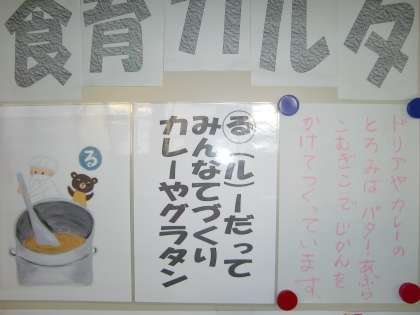 食育カルタ
る
る(ル)ーだって
みんなてづくり
カレーやグラタン
ドリアやカレーの
とろみは バター・あぶら
こむぎこで じかんを
かけてつくっています。